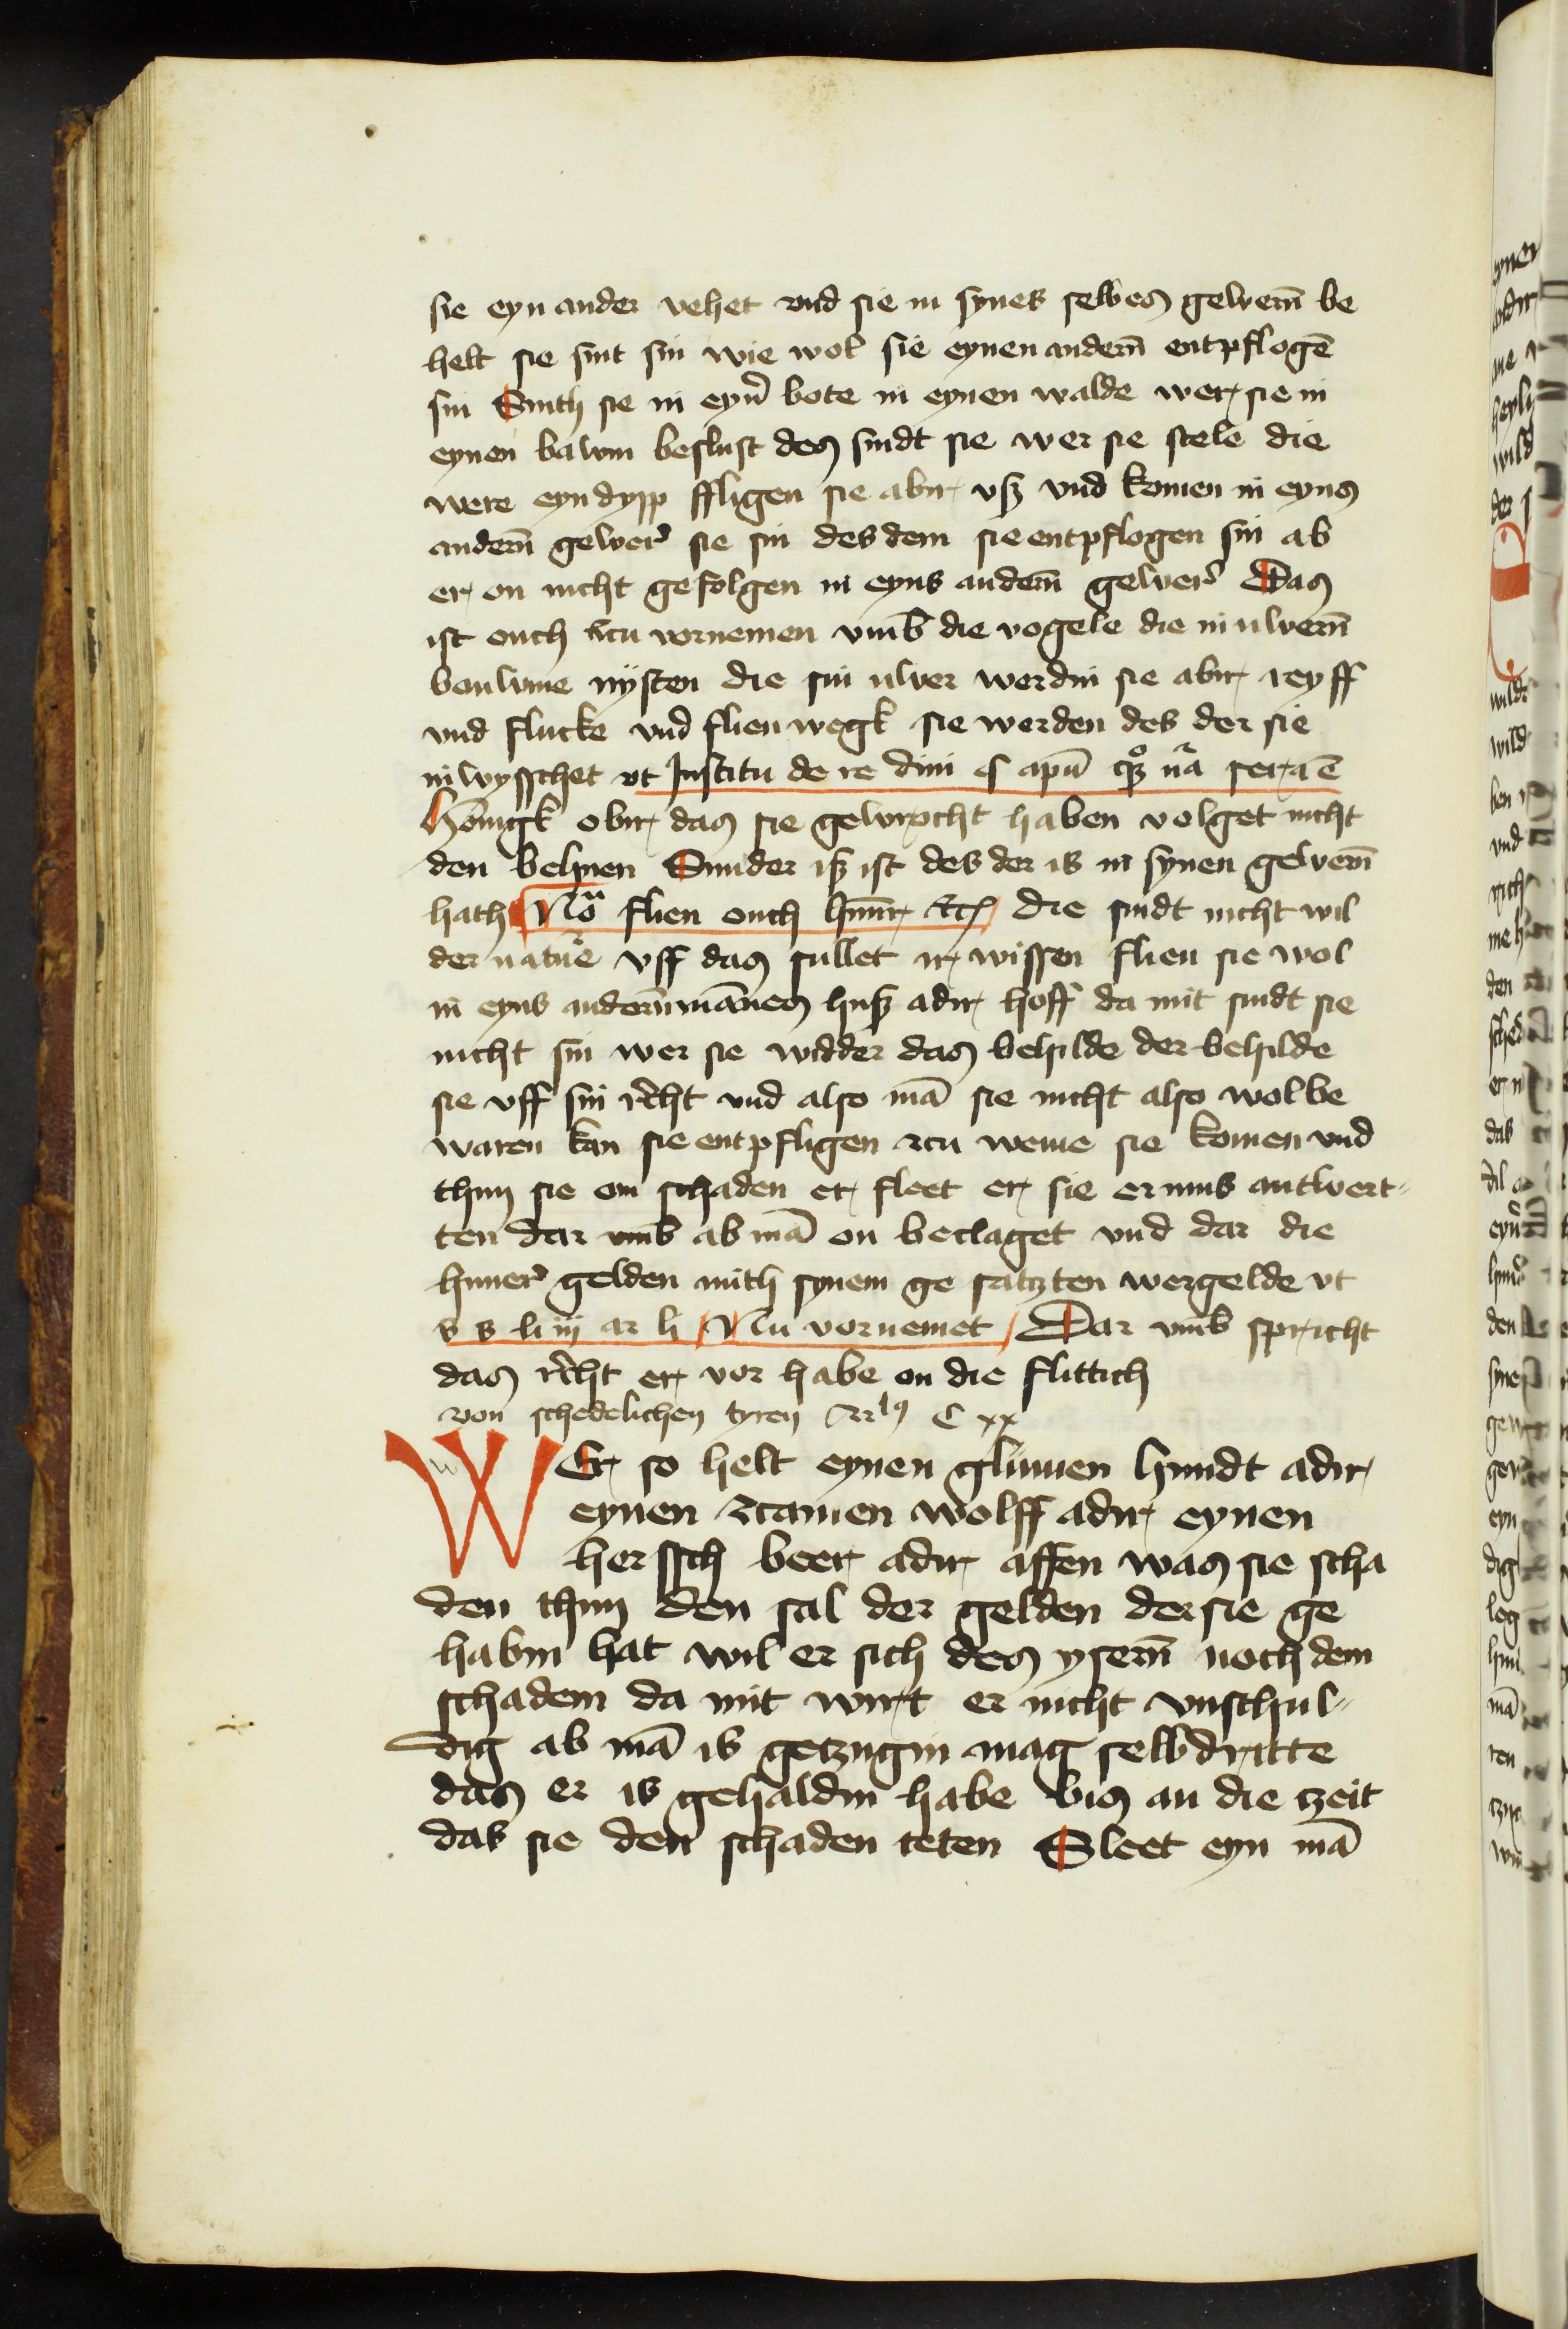 sie eyn ander vehet vnd sie in synes selbes gewerñ be
helt sie sint sin wie wol sie eynen anderñ entpflogē
sin Sinth sie in eyñ bote in eynen walde wer sie in
eynen bawm beslust des sindt sie wer sie stele die
were eyn dypp ffligen sie abir vß vnd komen in eyns
anderñ gewer sie sin des dem sie entpflogen sin ab
er on nicht gefolgen in eyns anderñ gewer Das
ist ouch zcu vornemen vmb die vogele die in uwerñ
beuwme nysten die sin uwer werdin sie abir reyff
vnd flucke vnd flien wegk sie werden des der sie
irwysschet vt Institu de re diui § apū
Honigk obir das sie gewrocht haben volget nicht
den beynen Sunder iß ist des der is in synen gewerñ
hath Nō flien ouch hunr etc die sindt nicht wil
der nature vff das sullet ir wissen flien sie wol
in eyns anderñ mānes huß adir hoff da mit sindt sie
nicht sin wer sie widder das behilde der behilde
sie vff sin recht vnd also mā sie nicht also wol be
waren kan sie entpfligen zcu weme sie komen vnd
thun sie om schaden er sleet er sie er mus antwert-
ten dar vmb ab mā on beclaget vnd dar die
huner gelden mith synem ge satzten wergelde vt
s s li iij ar li Nu vornemet Dar vmb spricht
das recht er vor habe on die flittich
von schedelichen tyren C xx
WEr so helt eynen glimen hundt adir
eynen zcamen wolff adir eynen
herssch beer adir affen was sie scha
den thun den sal der gelden der sie ge
habin hat wil er sich des yserñ noch dem
schadem da mit wirt er nicht vnschul-
dig ab mā is getzugin mag selbdritte
das er is gehaldin habe bis an die tzeit
das sie den schaden teten Sleet eyn mā